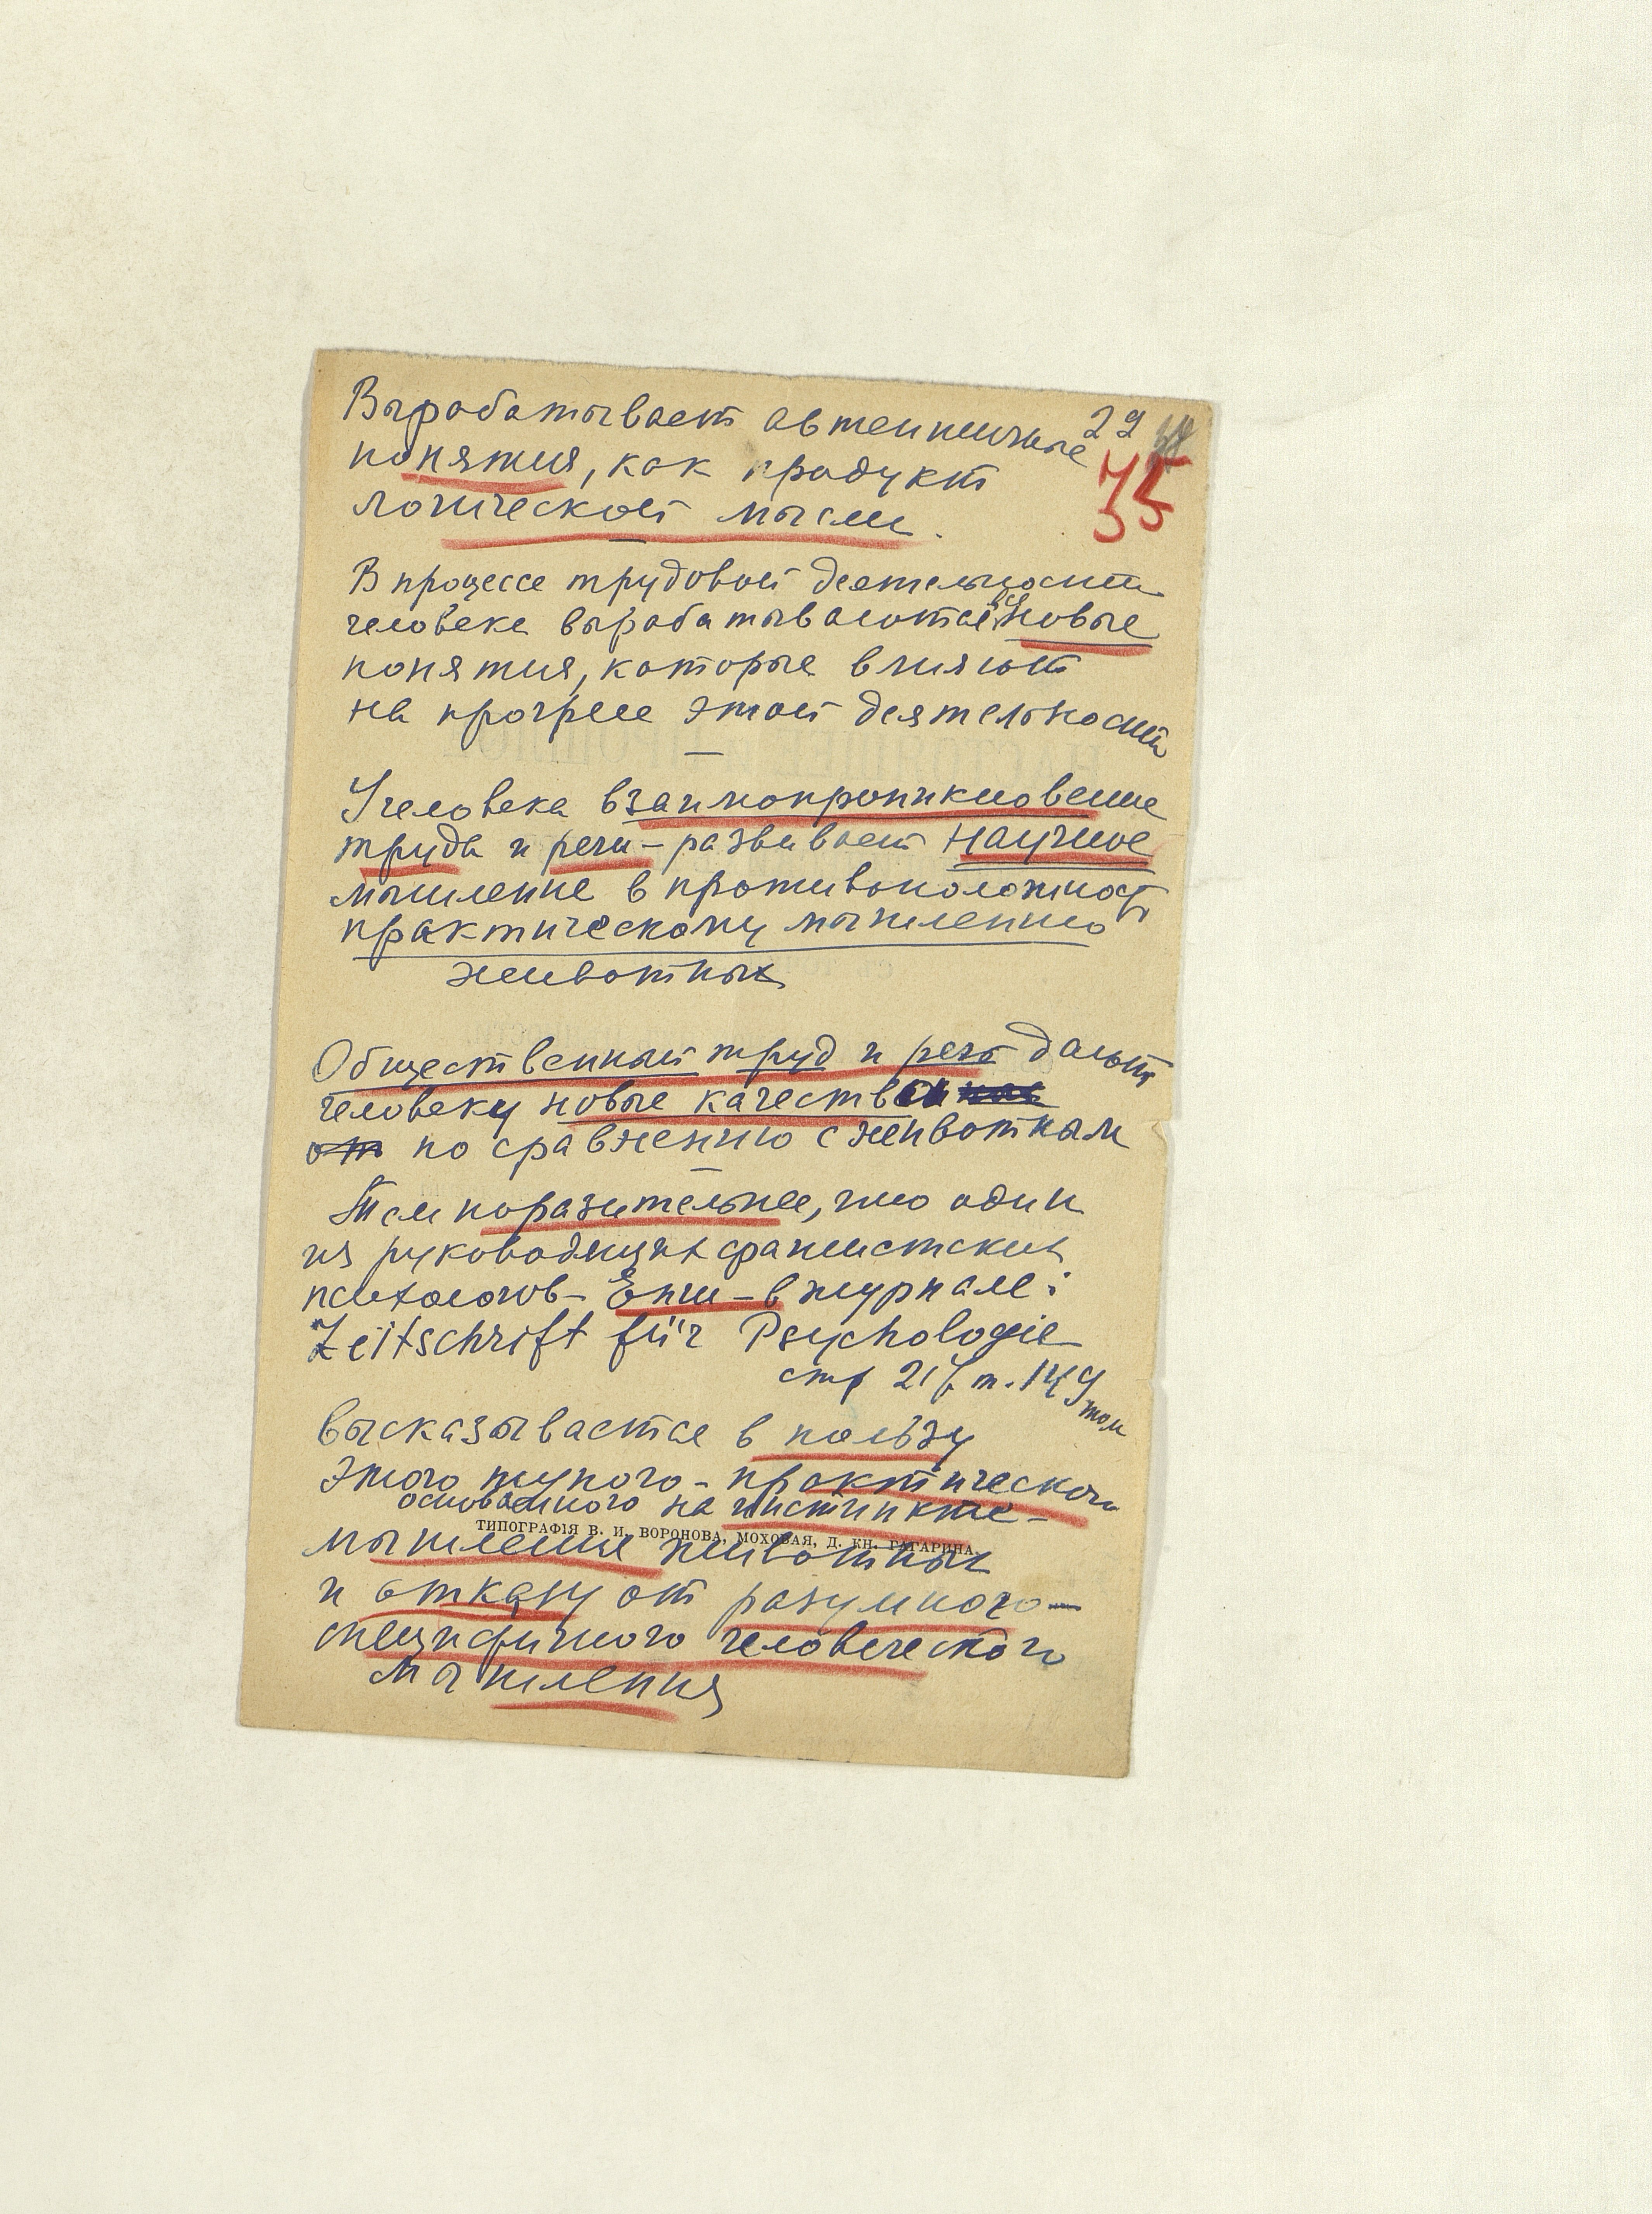 Вырабатывает автентичные 29
понятия, как продукт 35
логической мысли.
В процессе трудовой деятельности
человека вырабатываются все новые
понятия, которые влияют
на прогресс этой деятельности
У человека взаимопроникновение
труда и речи – развивает научное
мышление в противоположность
практическому мышлению
животных
Общественный труд и речь дают
человеку новые качества
от по сравнению с животным
Тем поразительнее, что один
из руководящих фашистских
психологов – Енш – в журнале:
Zeitschrift für Psychologie
стр 21 т. 149
том
высказывается в пользу
этого тупого – практического
основанного на инстинкте –
ТИПОГРАФІЯ В. И. ВОРОНОВА, МОХОВАЯ, Д. КН. ГАГАРИНА.
мышления животных
и отказу от разумного –
специфичного человеческого
мышления